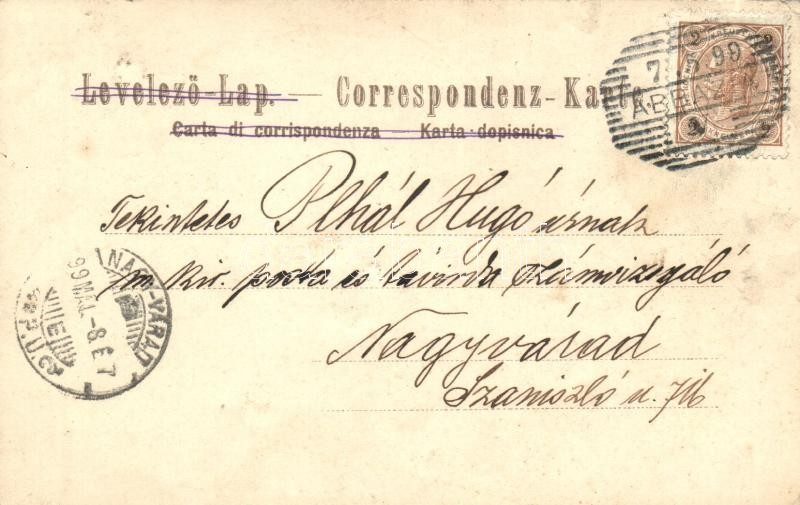 Levelező-Lap. — Correspondenz-Karte
Carta di corrispondenza — Karta dopisnica
7 5 99
ABBAZIA
2 2
2 2
Tekintetes Plhál Hugó úrnak
m. kir. posta és távirda számvizsgáló
Nagyvárad
Szaniszló u.
NAGY-VÁRAD
99 MÁJ. -8. E 7